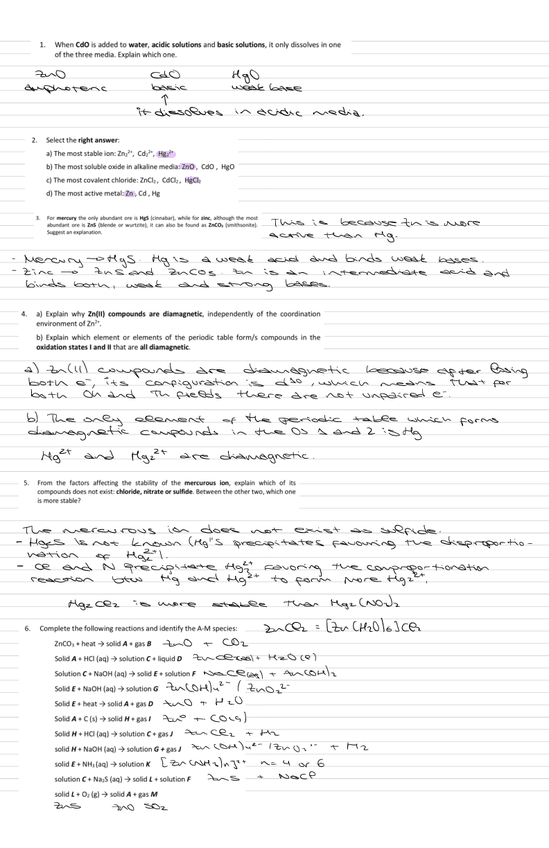 1. When CdO is added to water, acidic solutions and basic solutions, it only dissolves in one
of the three media. Explain which one.
ZnO CdO HgO
amphoteric basic weak base
↑
it dissolves in acidic media.
2. Select the right answer:
a) The most stable ion: Zn₂²⁺, Cd₂²⁺, Hg₂²⁺
b) The most soluble oxide in alkaline media: ZnO, CdO, HgO
c) The most covalent chloride: ZnCl₂, CdCl₂, HgCl₂
d) The most active metal: Zn, Cd, Hg
3. For mercury the only abundant ore is HgS (cinnabar), while for zinc, although the most
abundant ore is ZnS (blende or wurtzite), it can also be found as ZnCO₃ (smithsonite).
Suggest an explanation.
This is because Zn is more
active than Hg.
- Mercury → HgS. Hg is a weak acid and binds weak bases.
- Zinc → ZnS and ZnCO₃. Zn is an intermediate acid and
binds both, weak and strong bases.
4. a) Explain why Zn(II) compounds are diamagnetic, independently of the coordination
environment of Zn²⁺.
b) Explain which element or elements of the periodic table form/s compounds in the
oxidation states I and II that are all diamagnetic.
a) Zn(II) compounds are diamagnetic because after losing
both e⁻, its configuration is d¹⁰, which means that for
both Oh and Th fields there are not unpaired e⁻.
b) The only element of the periodic table which forms
diamagnetic compounds in the OS 1 and 2 is Hg
Hg²⁺ and Hg₂²⁺ are diamagnetic.
5. From the factors affecting the stability of the mercurous ion, explain which of its
compounds does not exist: chloride, nitrate or sulfide. Between the other two, which one
is more stable?
The mercurous ion does not exist as sulfide.
- Hg₂S is not known (Hg"S precipitates favouring the disproportio-
nation of Hg₂²⁺).
- Cl and N precipitate Hg₂²⁺ favoring the comproportionation
reaction btw Hg and Hg²⁺ to form more Hg₂²⁺.
Hg₂Cl₂ is more stable than Hg₂(NO₃)₂
6. Complete the following reactions and identify the A-M species:
ZnCl₂ = [Zn(H₂O)₆]Cl₂
ZnCO₃ + heat → solid A + gas B ZnO + CO₂
Solid A + HCl (aq) → solution C + liquid D ZnCl₂(aq) + H₂O(l)
Solution C + NaOH (aq) → solid E + solution F NaCl(aq) + Zn(OH)₂
Solid E + NaOH (aq) → solution G Zn(OH)₄²⁻ / ZnO₂²⁻
Solid E + heat → solid A + gas D ZnO + H₂O
Solid A + C (s) → solid H + gas I Zn⁰ + CO(g)
Solid H + HCl (aq) → solution C + gas J ZnCl₂ + H₂
solid H + NaOH (aq) → solution G + gas J Zn(OH)₄²⁻ / ZnO₂²⁻ + H₂
solid E + NH₃ (aq) → solution K [Zn(NH₃)n]²⁺ n = 4 or 6
solution C + Na₂S (aq) → solid L + solution F ZnS + NaCl
solid L + O₂ (g) → solid A + gas M
ZnS ZnO SO₂